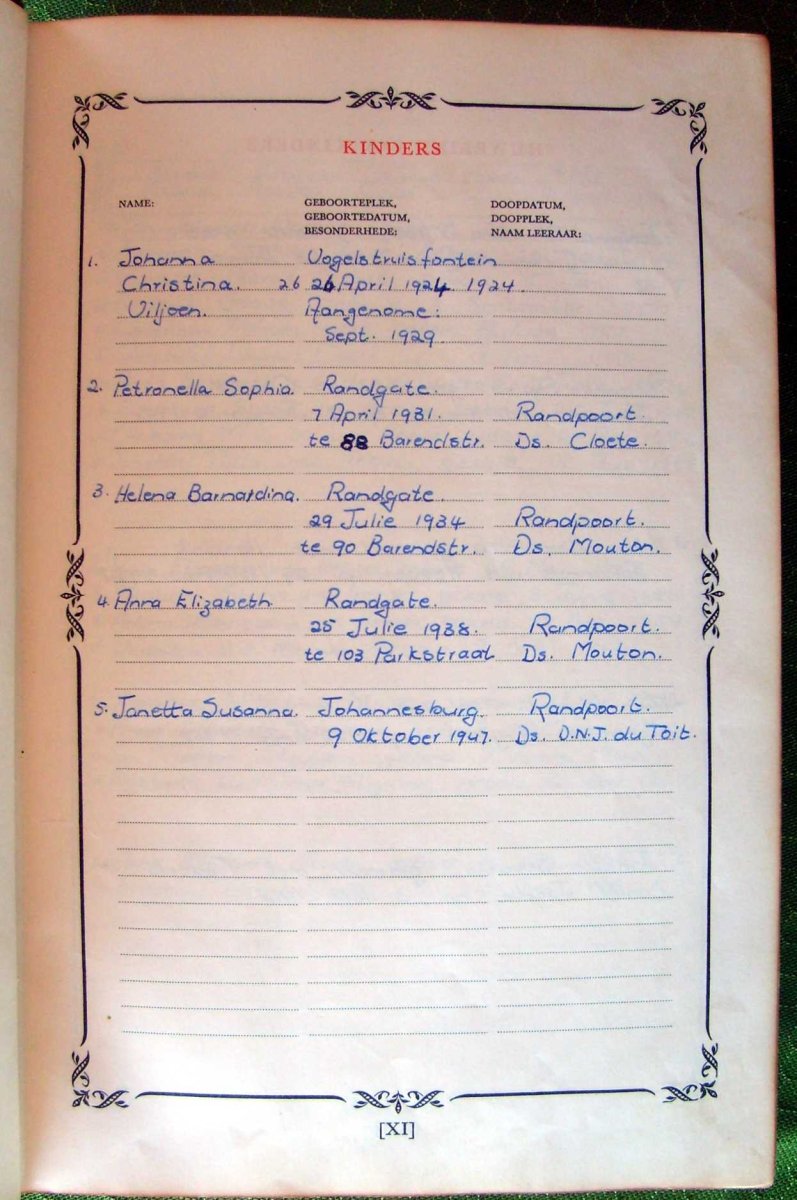 KINDERS
NAME: GEBOORTEPLEK, DOOPDATUM,
GEBOORTEDATUM, DOOPPLEK,
BESONDERHEDE: NAAM LEERAAR:
1. Johanna Vogelstruisfontein
Christina. 26 26 April 1924. 1924.
Viljoen. Aangenome:
Sept. 1929.
2. Petronella Sophia. Randgate.
7 April 1931. Randpoort.
te 88 Barendstr. Ds. Cloete.
3. Helena Barnardina. Randgate.
29 Julie 1934 Randpoort.
te 90 Barendstr. Ds. Mouton.
4. Anna Elizabeth Randgate.
25 Julie 1938. Randpoort.
te 103 Parkstraat Ds. Mouton.
5. Janetta Susanna. Johannesburg. Randpoort.
9 Oktober 1947. Ds. D.N.J. du Toit.
[XI]